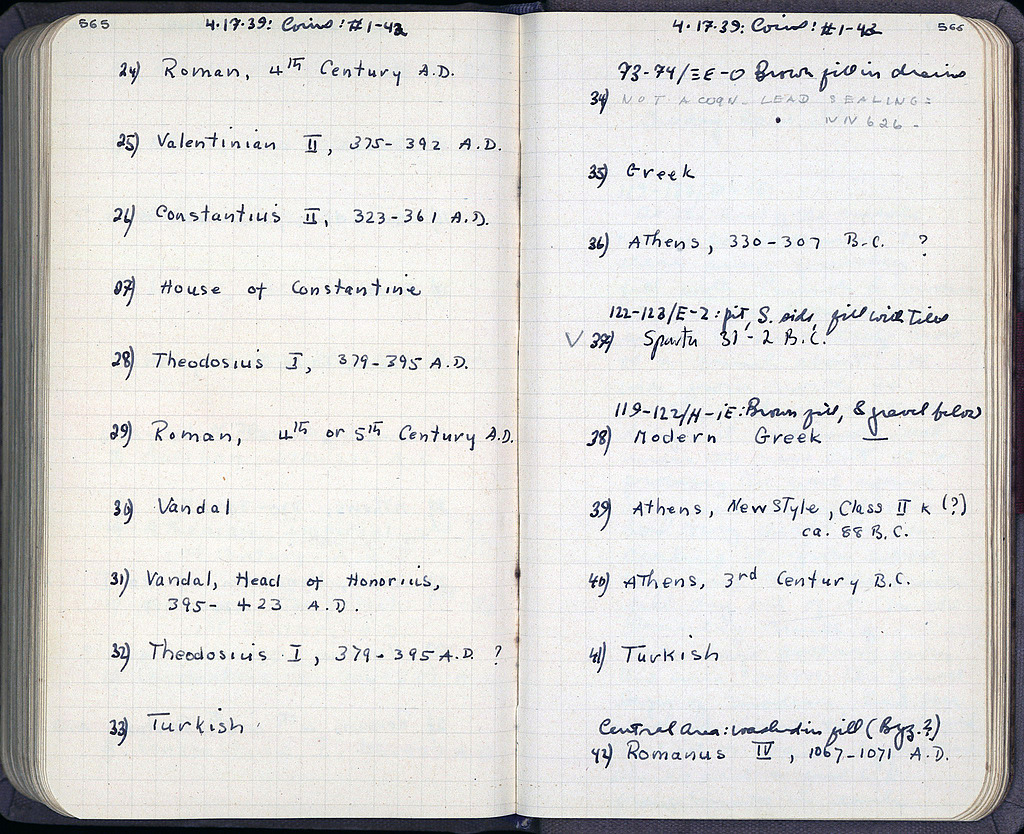 565
4·17·39: Coins: #1-42
24) Roman, 4th Century A.D.
25) Valentinian II, 375-392 A.D.
26) Constantius II, 323-361 A.D.
27) House of Constantine
28) Theodosius I, 379-395 A.D.
29) Roman, 4th or 5th Century A.D.
30) Vandal
31) Vandal, Head of Honorius,
395-423 A.D.
32) Theodosius I, 379-395 A.D. ?
33) Turkish
4·17·39: Coins: #1-42
566
73-74/ΞE-O Brown fill in drains
34) NOT A COIN - LEAD SEALING:
IV N 626 -
35) Greek
36) Athens, 330-307 B.C. ?
122-123/E-Z: pit, S. side, fill with tiles
V 37) Sparta 31-2 B.C.
119-122/H-IE: Brown fill, & gravel below
38) Modern Greek —
39) Athens, New Style, Class II K (?)
ca. 88 B.C.
40) Athens, 3rd Century B.C.
41) Turkish
Central Area: washed in fill (Byz.?)
42) Romanus IV, 1067-1071 A.D.